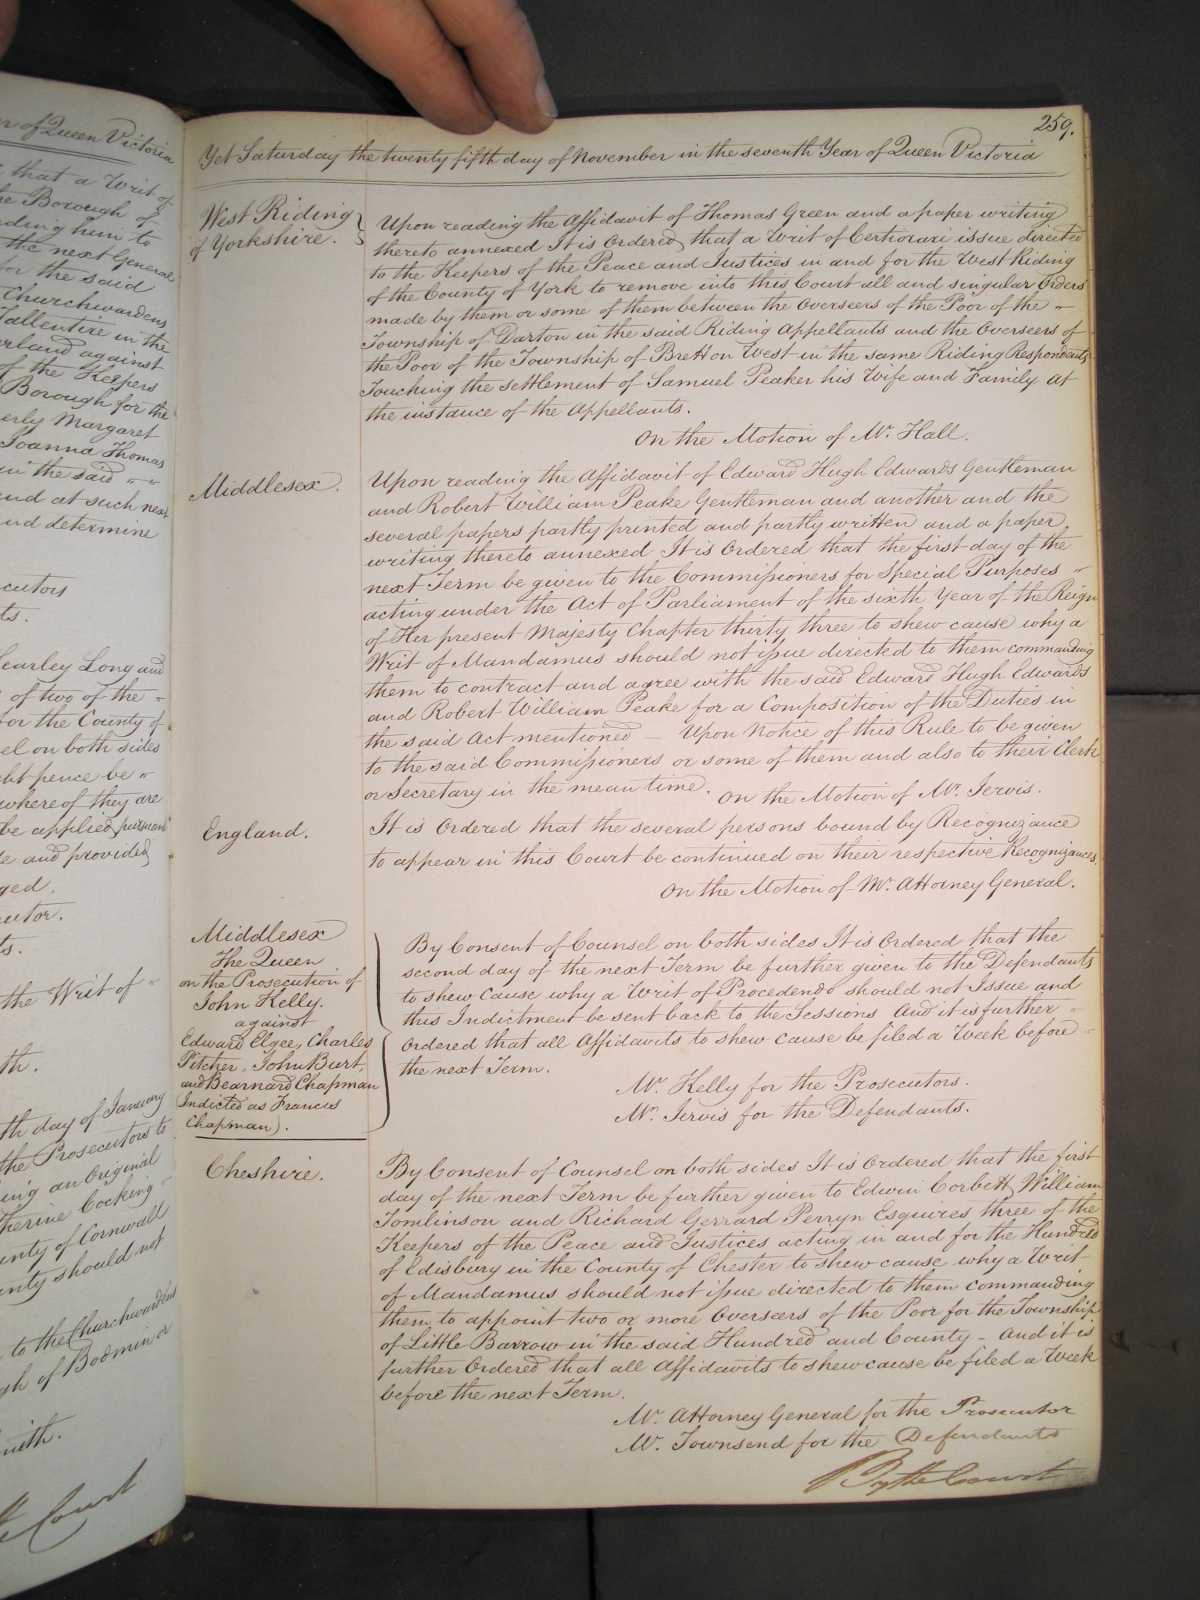 er of Queen Victoria
that a Writ of
the Borough of
ding him to
the next General
for the said
Churchwardens
Tallentire in the
erland against
of the Keepers
Borough for the
erly Margaret
Joanna Thomas
in the said
and at such next
und determine
cutors
ts.
earley Long and
of two of the
for the County of
sel on both sides
ght pence be
where of they are
be applied pursuant
de and provided
ged.
cutor.
ts.
the Writ of
th.
th day of January
the Prosecutors to
ing an Original
therine Cocking
unty of Cornwall
unty should not
to the Churchwardens
gh of Bodmin or
mith.
Court
259.
Yet Saturday the twenty fifth day of November in the seventh Year of Queen Victoria
West Riding
of Yorkshire.
Upon reading the Affidavit of Thomas Green and a paper writing
thereto annexed It is Ordered that a Writ of Certiorari issue directed
to the Keepers of the Peace and Justices in and for the West Riding
of the County of York to remove into this Court all and singular Orders
made by them or some of them between the Overseers of the Poor of the
Township of Darton in the said Riding Appellants and the Overseers of
the Poor of the Township of Bretton West in the same Riding Respondents
Touching the settlement of Samuel Peaker his Wife and Family At
the instance of the Appellants.
On the Motion of Mr. Hall.
Middlesex.
Upon reading the Affidavit of Edward Hugh Edwards Gentleman
and Robert William Peake Gentleman and another and the
several papers partly printed and partly written and a paper
writing thereto annexed It is Ordered that the first day of the
next Term be given to the Commissioners for Special Purposes
acting under the Act of Parliament of the sixth Year of the Reign
of Her present Majesty Chapter thirty three to shew cause why a
Writ of Mandamus should not issue directed to them commanding
them to contract and agree with the said Edward Hugh Edwards
and Robert William Peake for a Composition of the Duties in
the said Act mentioned — Upon Notice of this Rule to be given
to the said Commissioners or some of them and also to their Clerk
or Secretary in the mean time. On the Motion of Mr. Jervis.
England.
It is Ordered that the several persons bound by Recognizance
to appear in this Court be continued on their respective Recognizances.
On the Motion of Mr. Attorney General.
Middlesex
The Queen
on the Prosecution of
John Kelly.
against
Edward Elgee, Charles
Pitcher, John Burt,
and Bearnard Chapman
Indicted as Francis
Chapman).
By Consent of Counsel on both sides It is Ordered that the
second day of the next Term be further given to the Defendants
to shew cause why a Writ of Procedendo should not Issue and
this Indictment be sent back to the Sessions And it is further
Ordered that all Affidavits to shew cause be filed a Week before
the next Term.
Mr. Kelly for the Prosecutors.
Mr. Jervis for the Defendants.
Cheshire.
By Consent of Counsel on both sides It is Ordered that the first
day of the next Term be further given to Edwin Corbett, William
Tomlinson and Richard Gerrard Perryn Esquires three of the
Keepers of the Peace and Justices acting in and for the Hundred
of Edisbury in the County of Chester to shew cause why a Writ
of Mandamus should not issue directed to them commanding
them to appoint two or more Overseers of the Poor for the Township
of Little Barrow in the said Hundred and County – And it is
further Ordered that all Affidavits to shew cause be filed a Week
before the next Term.
Mr. Attorney General for the Prosecutor
Mr. Townsend for the Defendants
By the Court